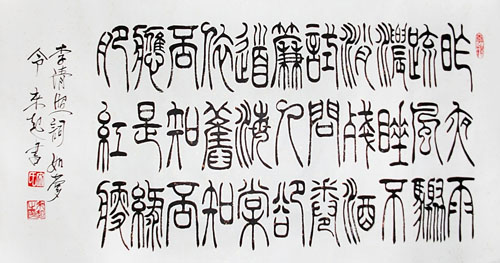 昨夜雨
疏風驟
濃睡不
消殘酒
試問卷
簾人卻
道海棠
依舊知
否知否
應是綠
肥紅瘦
李清照詞如夢
令書